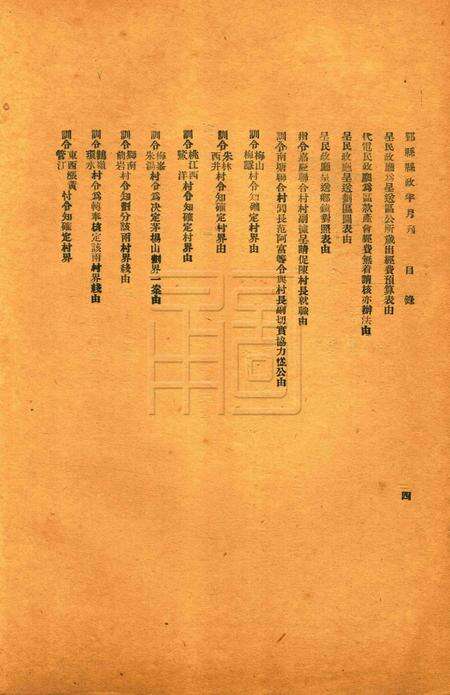 鄞縣縣政半月刊 目錄
呈民政廳為呈送區公所歲出經費預算表由
代電民政廳為區款產會經費無着請核示辦法由
呈民政廳呈送劃區圖表由
呈民政廳呈送鄉鎮對照表由
指令嘉慶聯合村村副據呈請促陳村長就職由
訓令南塘聯合村閭長范阿富等令與村長副切實協力從公由
訓令梅山梅嶴村令知確定村界由
訓令朱林西井村令知確定村界由
訓令桃江西鷺洋村令知確定村界由
訓令梅峯朱湯村令為決定茅楊山劃界一案由
訓令獅南前岩村令知劃分該兩村界綫由
訓令鶴嶺環水村令為轉奉核定該兩村界綫由
訓令東西漲黃管江村令知確定村界
四